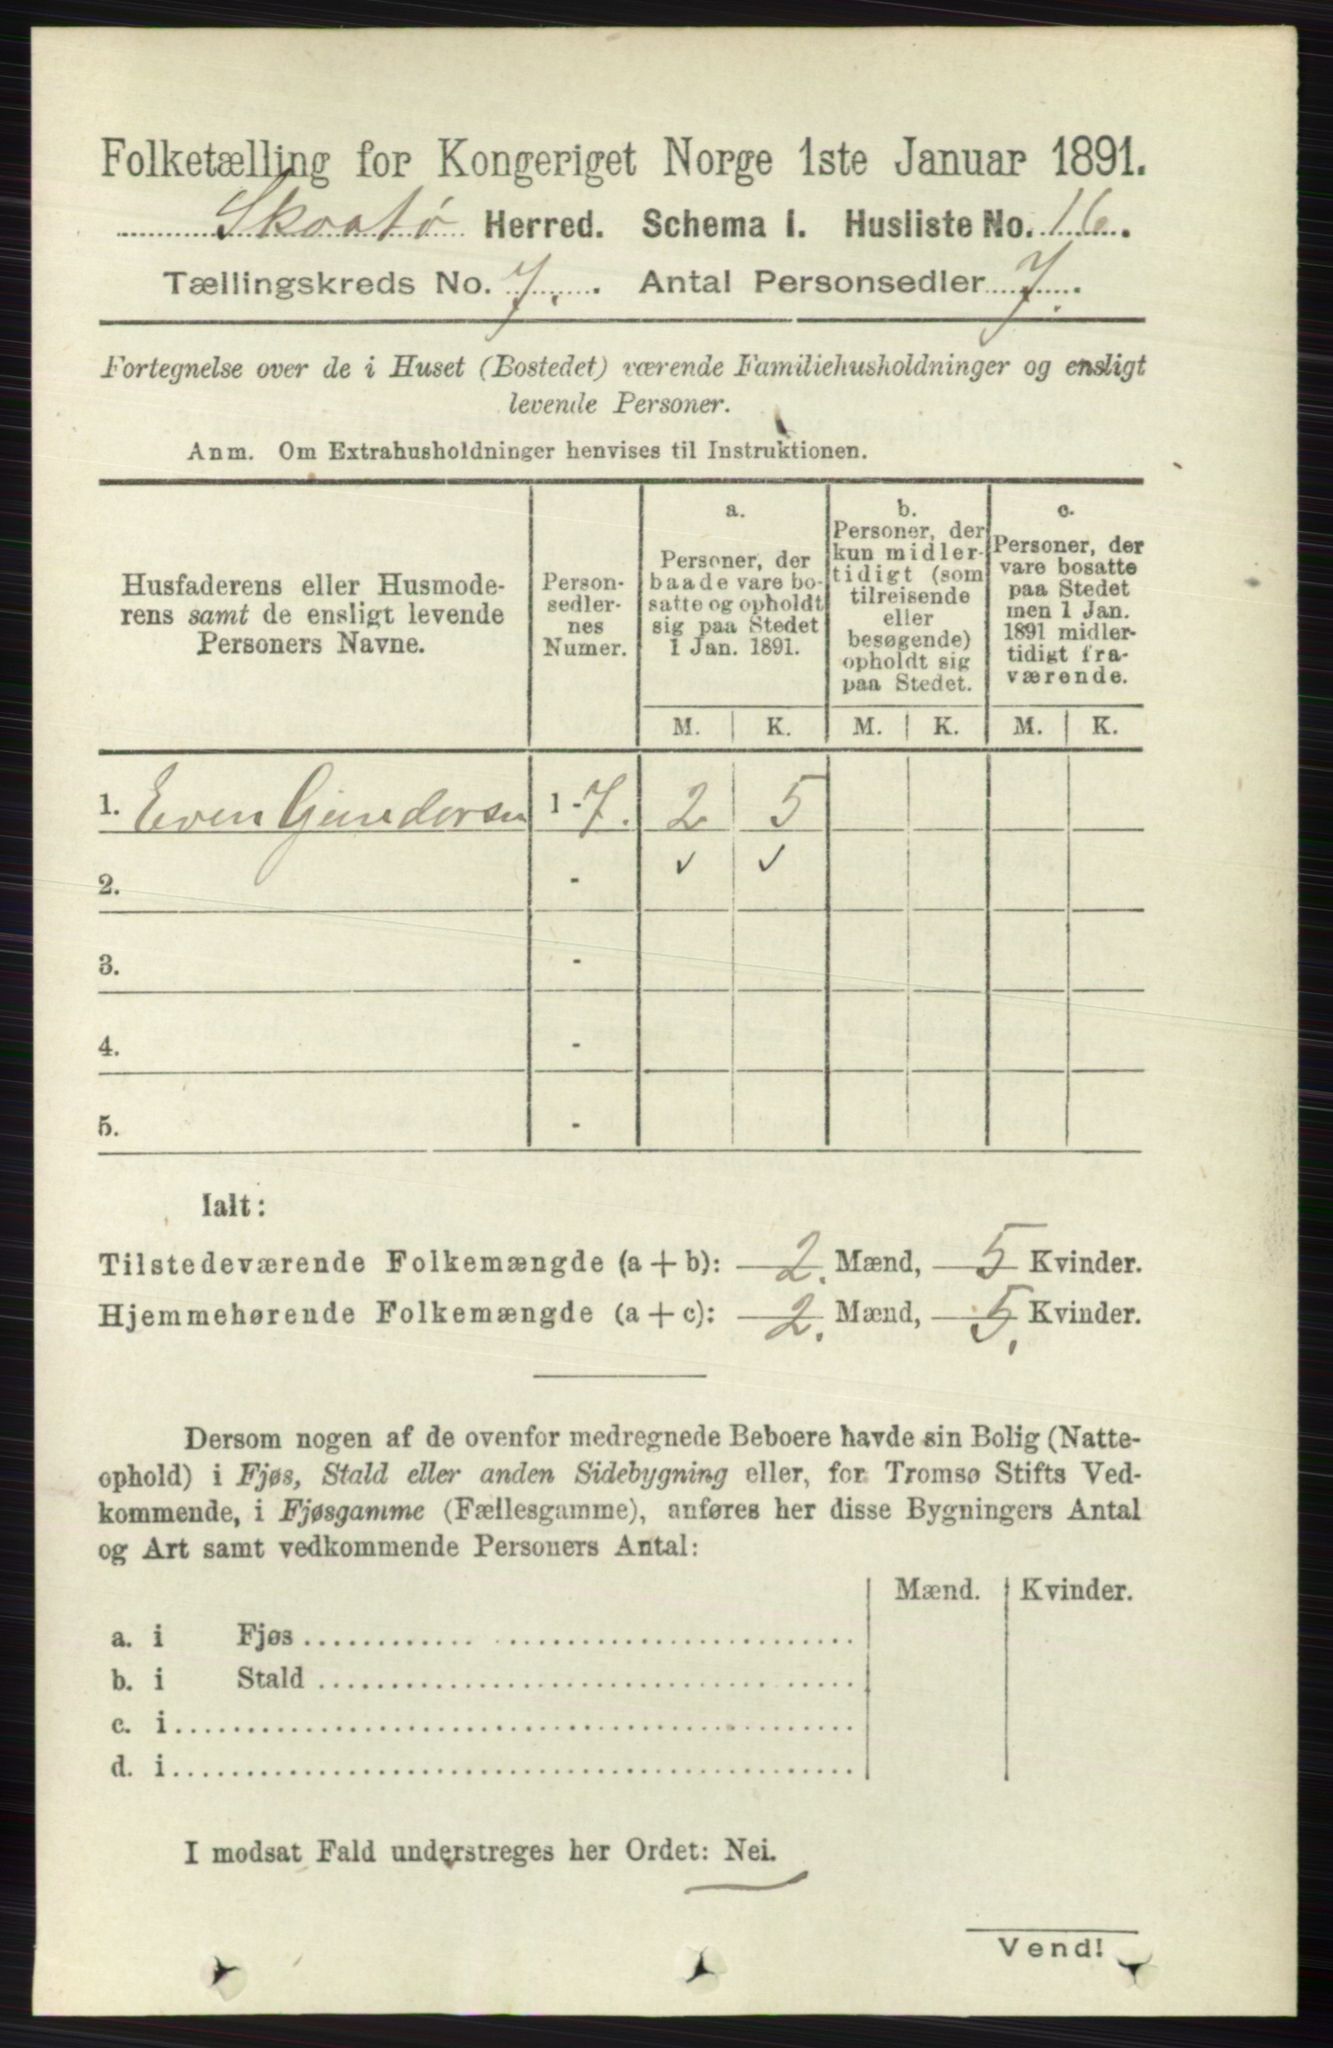 Folketælling for Kongeriget Norge 1ste Januar 1891.
Skaatø Herred. Schema I. Husliste No. 16.
Tællingskreds No. 7. Antal Personsedler 7.
Fortegnelse over de i Huset (Bostedet) værende Familiehusholdninger og ensligt
levende Personer.
Anm. Om Extrahusholdninger henvises til Instruktionen.
Husfaderens eller Husmode-
rens samt de ensligt levende
Personers Navne.
Person-
sedler-
nes
Numer.
a.
Personer, der
baade vare bo-
satte og opholdt
sig paa Stedet
1 Jan. 1891.
b.
Personer, der
kun midler-
tidigt (som
tilreisende
eller
besøgende)
opholdt sig
paa Stedet.
c.
Personer, der
vare bosatte
paa Stedet
men 1 Jan.
1891 midler-
tidigt fra-
værende.
M. K. M. K. M. K.
1. Even Gundersen 1 - 7. 2 5
2. - ✓ ✓
3. -
4. -
5. -
Ialt:
Tilstedeværende Folkemængde (a + b): 2. Mænd, 5 Kvinder.
Hjemmehørende Folkemængde (a + c): 2. Mænd, 5. Kvinder.
Dersom nogen af de ovenfor medregnede Beboere havde sin Bolig (Natte-
ophold) i Fjøs, Stald eller anden Sidebygning eller, for Tromsø Stifts Ved-
kommende, i Fjøsgamme (Fællesgamme), anføres her disse Bygningers Antal
og Art samt vedkommende Personers Antal:
Mænd. Kvinder.
a. i Fjøs
b. i Stald
c. i
d. i
I modsat Fald understreges her Ordet: Nei.
Vend!